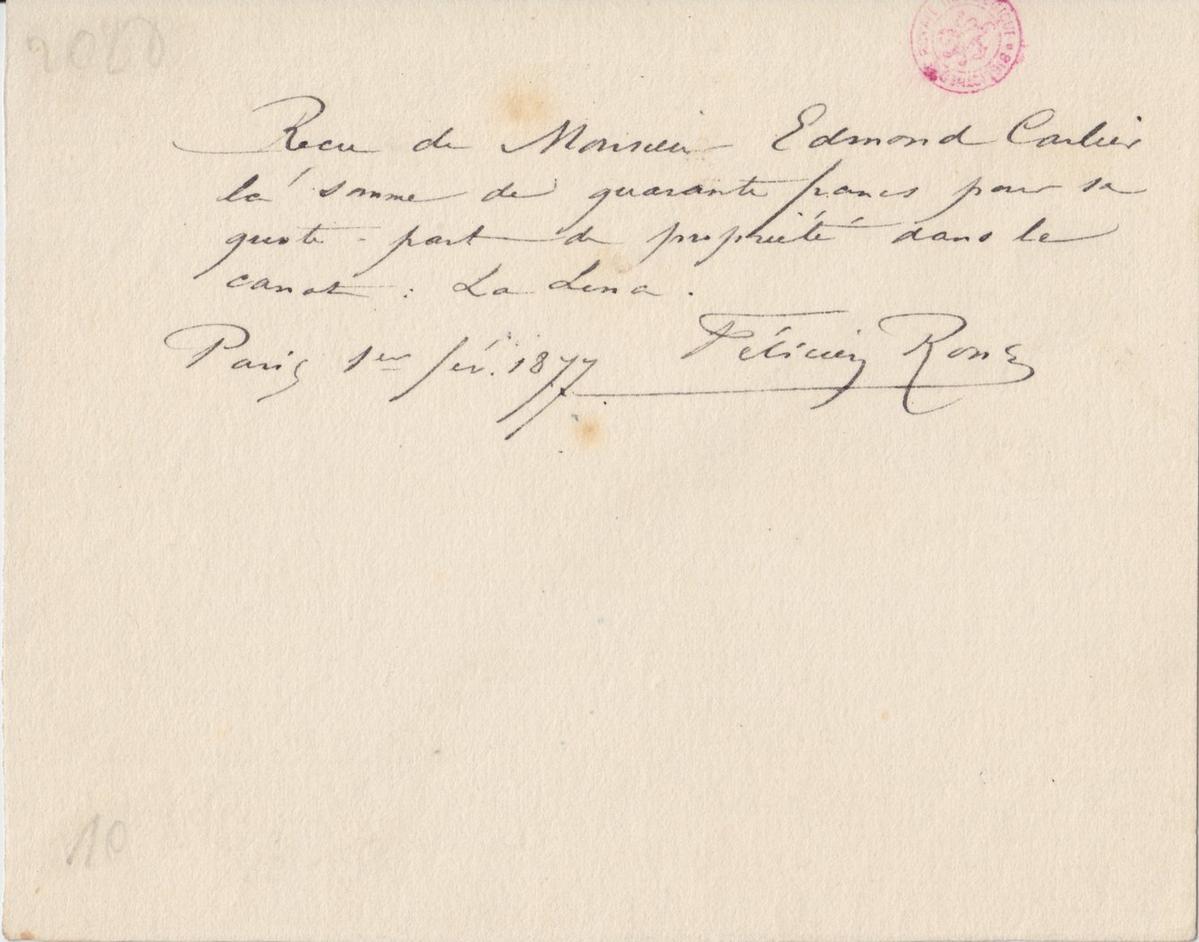 2080
Recu de Monsieur Edmond Carlier
la somme de quarante francs pour sa
quote-part de propriété dans le
canot : La Lena.
Paris 1er fév. 1877 Félicien Rops
10